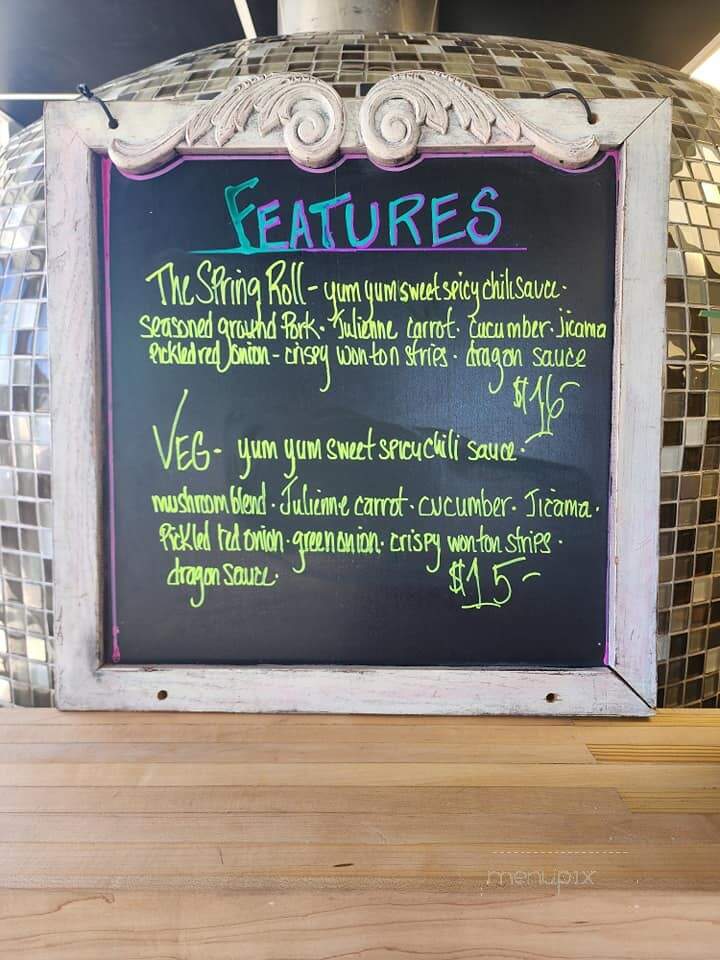 FEATURES
The Spring Roll - yum yum sweet spicy chili sauce.
seasoned ground Pork. Julienne carrot. cucumber. jicama
Pickled red onion - crispy wonton strips. dragon sauce
$16-
VEG - yum yum sweet spicy chili sauce.
mushroom blend. Julienne carrot. cucumber. Jicama.
Pickled red onion. green onion. crispy wonton strips.
dragon sauce.
$15-
menupix